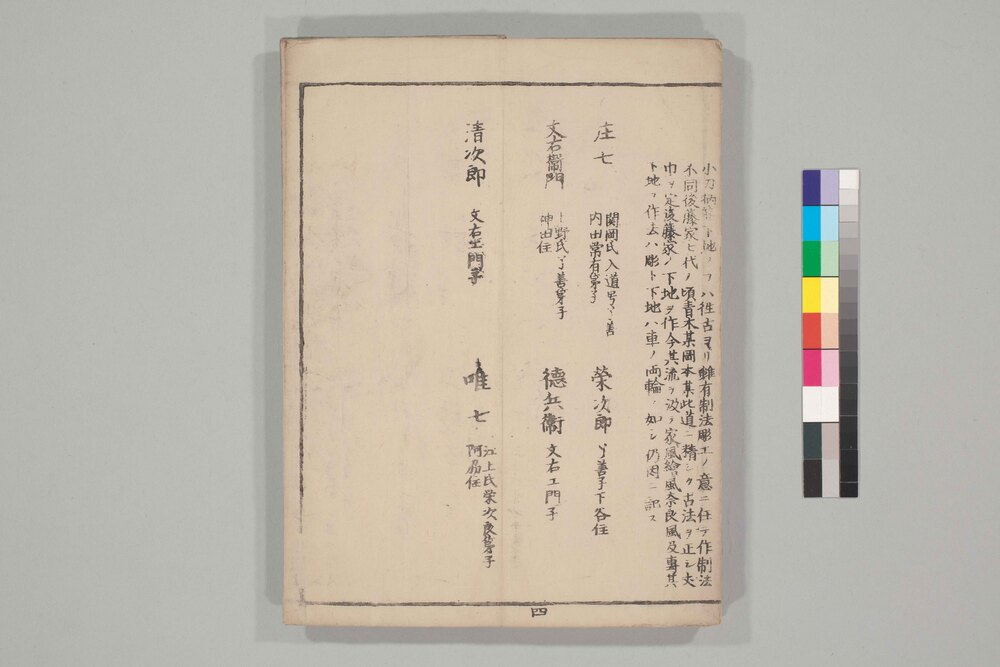 小刀柄笄下地ノフハ往古ヨリ雖有制法彫工ノ意ニ任テ作制法
不同後藤家七代ノ頃青木某岡本某此道ニ精シク古法ヲ正シ丈
巾ヲ定後藤家ノ下地ヲ作今其流ヲ汲テ家風繪風奈良風及專其
下地ヲ作去ハ彫ト下地ハ車ノ両輪ノ如シ仍因ニ記ス
庄七
関岡氏入道号了善
内田常有㐧子
栄次郎
了善子下谷住
文右衛門
上野氏了善㐧子
神田住
德兵衛
文右エ門子
清次郎
文右エ門㐧子
唯七
江上氏栄次良㐧子
住
四